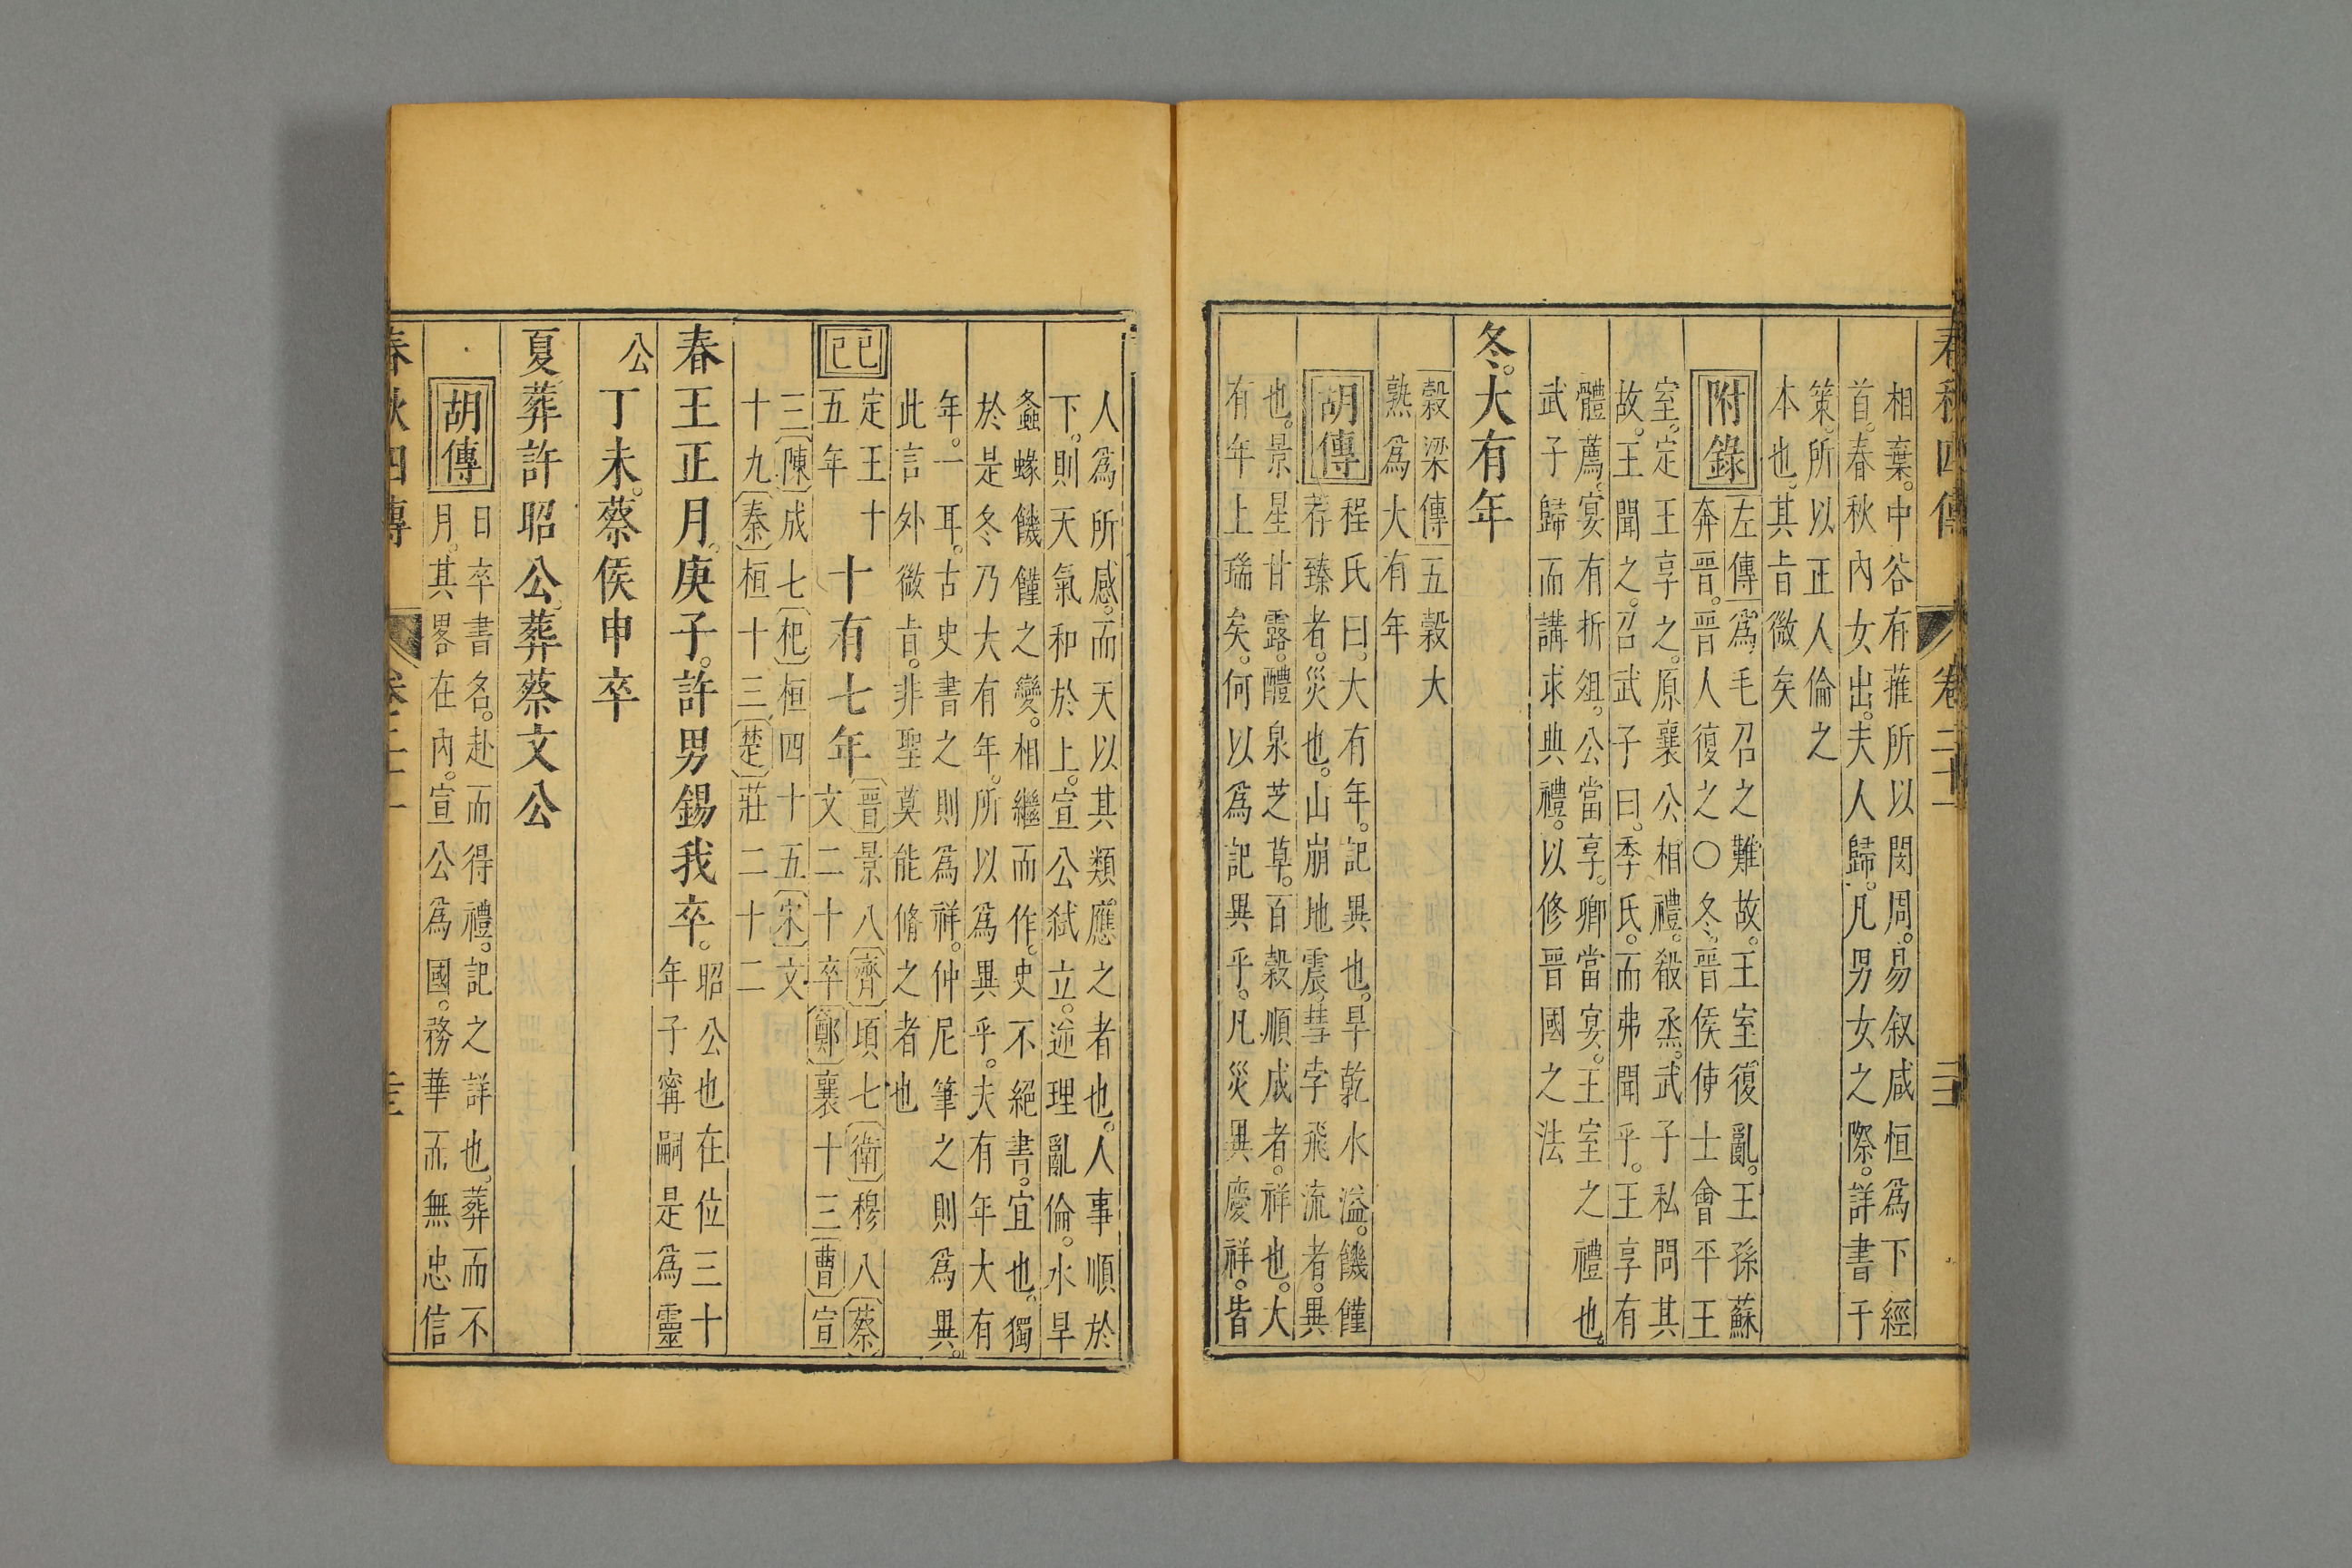 春秋四傳 卷二十一
相棄。中谷有蓷所以閔周。易叙咸恒爲下經
首。春秋內女出。夫人歸。凡男女之際。詳書于
策。所以正人倫之
本也。其旨微矣
附錄
左傳爲毛召之難故。王室復亂。王孫蘇
奔晉。晉人復之○冬。晉侯使士會平王
室。定王享之。原襄公相禮。殽烝。武子私問其
故。王聞之。召武子曰。季氏。而弗聞乎。王享有
體薦。宴有折俎。公當享。卿當宴。王室之禮也。
武子歸而講求典禮。以修晉國之法
冬。大有年
穀梁傳五穀大
熟爲大有年
胡傳
程氏曰。大有年。記異也。旱乾水溢。饑饉
荐臻者。災也。山崩地震。彗孛飛流者。異
也。景星甘露。醴泉芝草。百穀順成者。祥也。大
有年上瑞矣。何以爲記異乎。凡災異慶祥。皆
人爲所感。而天以其類應之者也。人事順於
下。則天氣和於上。宣公弑立。逆理亂倫。水旱
螽蝝饑饉之變。相繼而作。史不絕書。宜也。獨
於是冬乃大有年。所以爲異乎。夫有年大有
年。一耳。古史書之則爲祥。仲尼筆之則爲異。
此言外微旨。非聖莫能脩之者也
己巳
定王十
五年
十有七年
晉景八齊頃七衛穆八蔡
文二十卒鄭襄十三曹宣
三陳成七杞桓四十五宋文
十九秦桓十三楚莊二十二
春王正月。庚子。許男錫我卒。
昭公也在位三十
年子甯嗣是爲靈
公
丁未。蔡侯申卒
夏葬許昭公。葬蔡文公
胡傳
日卒書名。赴而得禮。記之詳也。葬而不
月。其畧在內。宣公爲國。務華而無忠信
春秋四傳